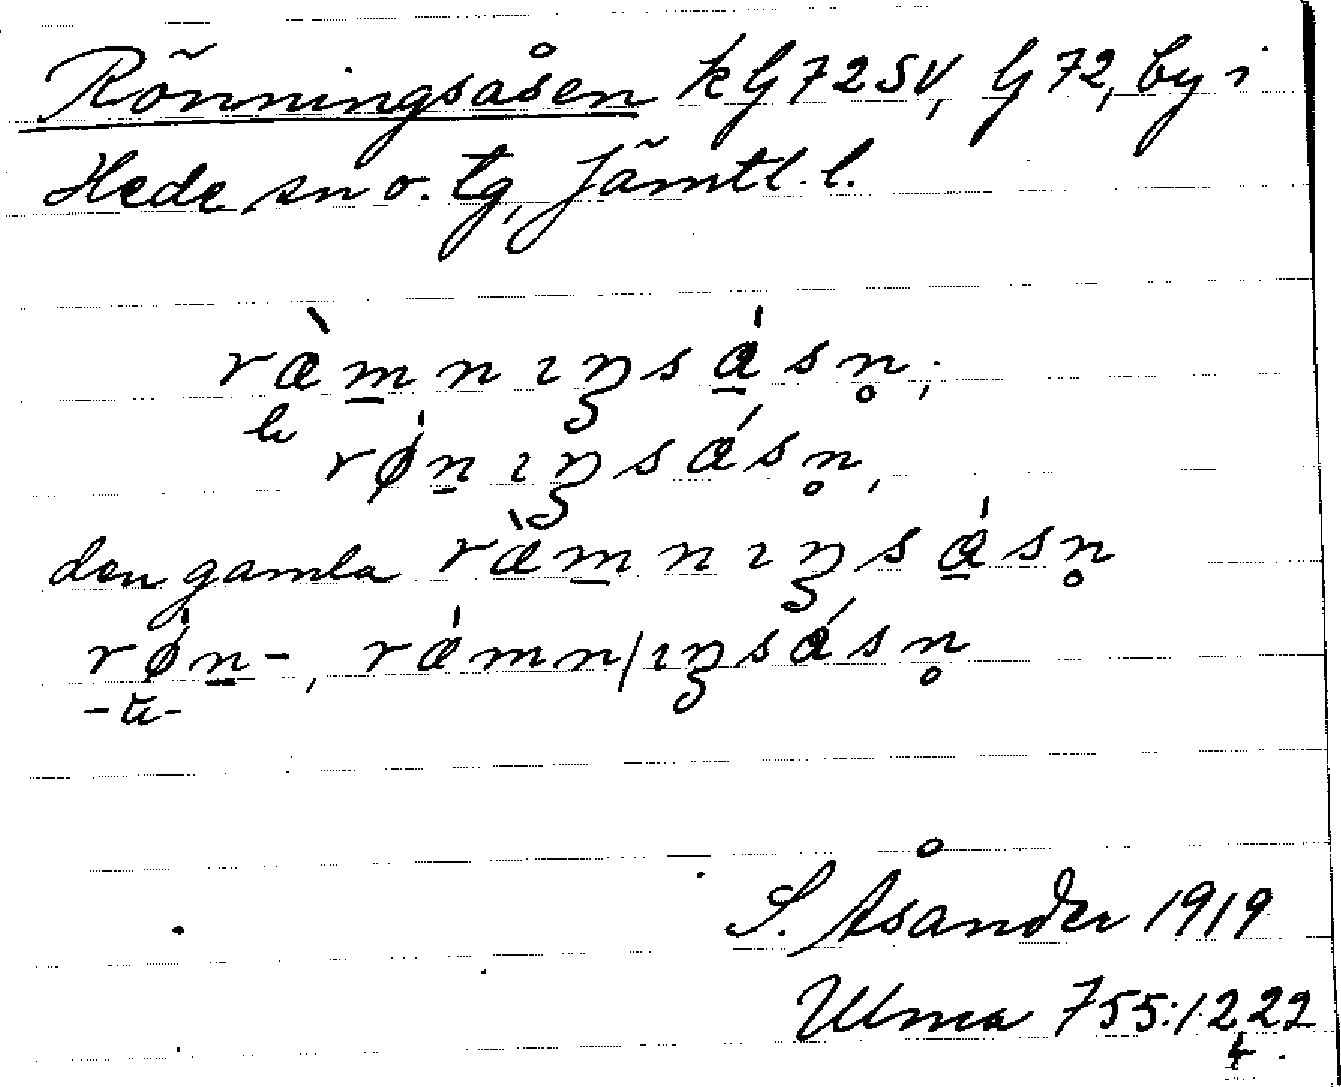 Rönningsåsen k G72SV, G 72, by i
Hede sn o. tg, Jämtl. l.
ræ̀m̲nıŋsá̲sn̥;
rø̀n̲ıŋsásn̥,
den gamla ræ̀m̲nıŋsá̲sn̥
rø̀n̲-, ræ̀mn/ıŋsásn̥
S. Åsander 1919
Ulma 755:1222
4.